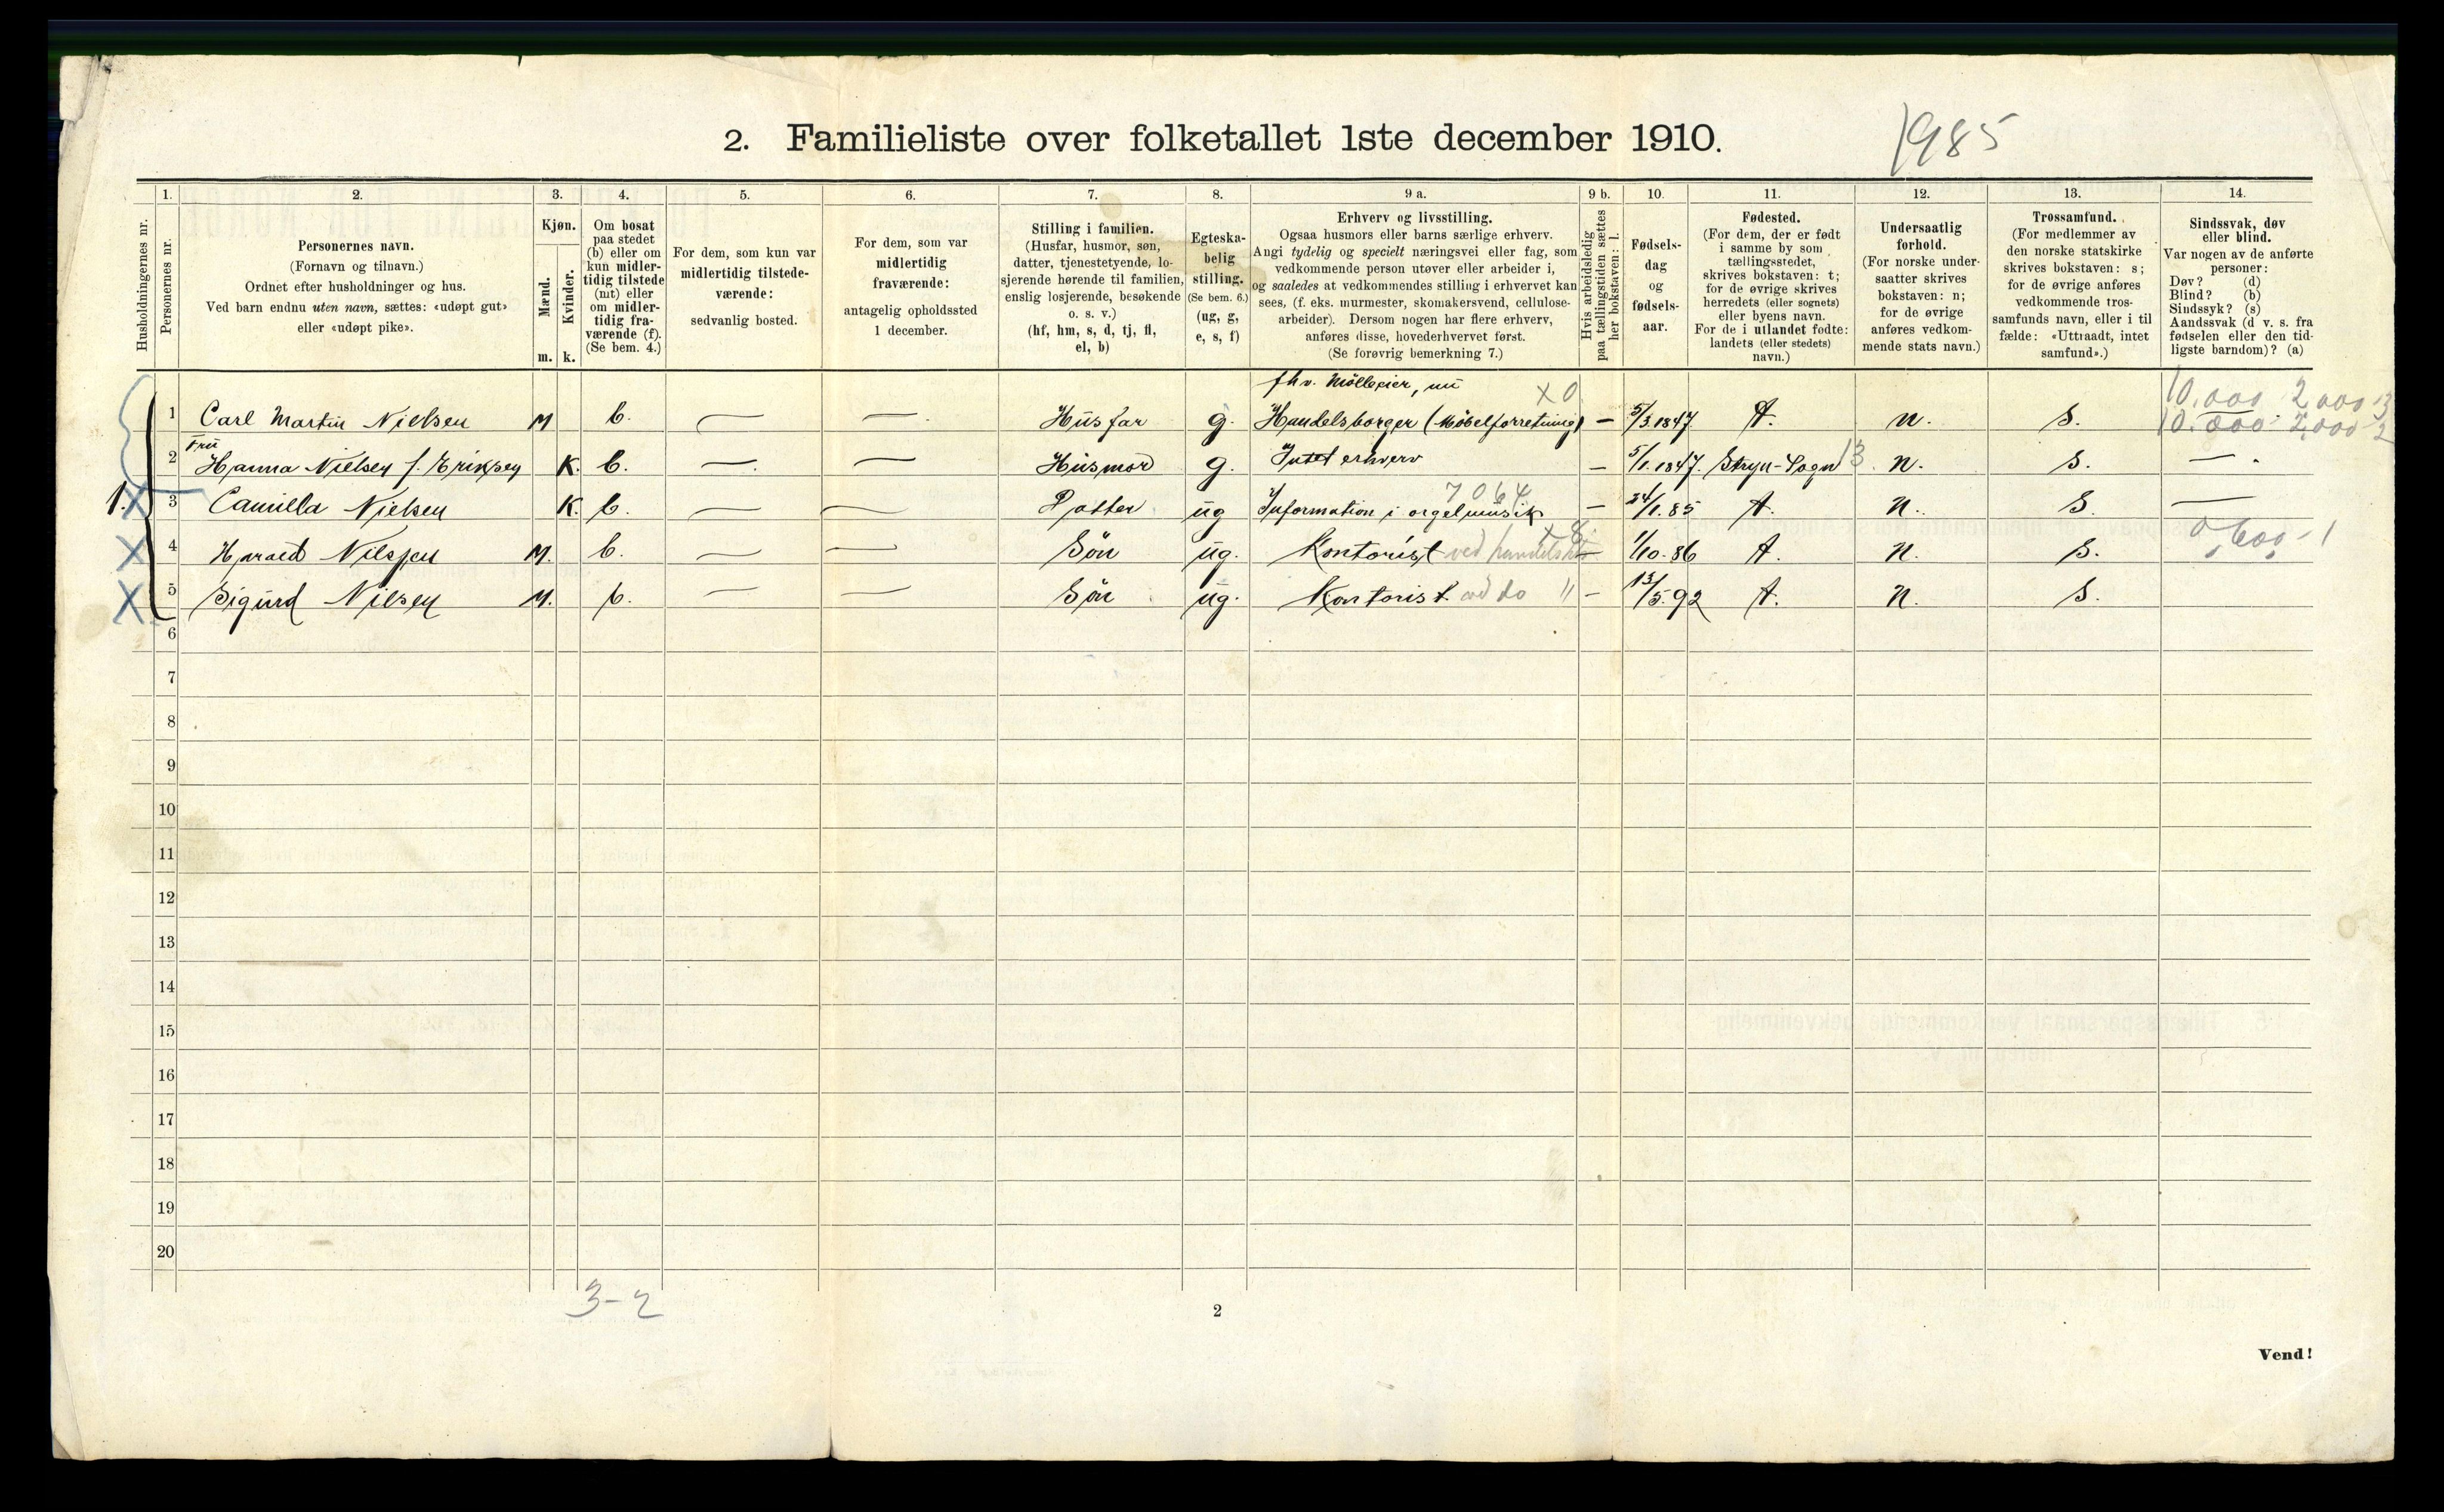 2. Familieliste over folketallet 1ste december 1910.
1985
1. 2. 3. 4. 5. 6. 7. 8. 9 a. 9 b. 10. 11. 12. 13. 14.
Husholdningernes nr.
Personernes nr.
Personernes navn.
(Fornavn og tilnavn.)
Ordnet efter husholdninger og hus.
Ved barn endnu uten navn, sættes: «udøpt gut»
eller «udøpt pike».
Kjøn.
Mænd.
Kvinder.
m. k.
Om bosat
paa stedet
(b) eller om
kun midler-
tidig tilstede
(mt) eller
om midler-
tidig fra-
værende (f).
(Se bem. 4.)
For dem, som kun var
midlertidig tilstede-
værende:
sedvanlig bosted.
For dem, som var
midlertidig
fraværende:
antagelig opholdssted
1 december.
Stilling i familien.
(Husfar, husmor, søn,
datter, tjenestetyende, lo-
sjerende hørende til familien,
enslig losjerende, besøkende
o. s. v.)
(hf, hm, s, d, tj, fl,
el, b)
Egteska-
belig
stilling.
(Se bem. 6.)
(ug, g,
e, s, f)
Erhverv og livsstilling.
Ogsaa husmors eller barns særlige erhverv.
Angi tydelig og specielt næringsvei eller fag, som
vedkommende person utøver eller arbeider i,
og saaledes at vedkommendes stilling i erhvervet kan
sees, (f. eks. murmester, skomakersvend, cellulose-
arbeider). Dersom nogen har flere erhverv,
anføres disse, hovederhvervet først.
(Se forøvrig bemerkning 7.)
Hvis arbeidsledig
paa tællingstiden sættes
her bokstaven: l.
Fødsels-
dag
og
fødsels-
aar.
Fødested.
(For dem, der er født
i samme by som
tællingsstedet,
skrives bokstaven: t;
for de øvrige skrives
herredets (eller sognets)
eller byens navn.
For de i utlandet fødte:
landets (eller stedets)
navn.)
Undersaatlig
forhold.
(For norske under-
saatter skrives
bokstaven: n;
for de øvrige
anføres vedkom-
mende stats navn.)
Trossamfund.
(For medlemmer av
den norske statskirke
skrives bokstaven: s;
for de øvrige anføres
vedkommende tros-
samfunds navn, eller i til
fælde: «Uttraadt, intet
samfund».)
Sindssvak, døv
eller blind.
Var nogen av de anførte
personer:
Døv? (d)
Blind? (b)
Sindssyk? (s)
Aandssvak (d v. s. fra
fødselen eller den tid-
ligste barndom)? (a)
fhv. Mölleeier, nu X0 10.000 2000-3
1 Carl Martin Nielsen M b. — — Husfar g. Handelsborger (Möbelforretning) – 5/3.1847 t. n. s. 10.000 - 2,000 2
Fru
2 Hanna Nielsen f. Eriksen K. b. — — Husmor g. Intet erhverv – 5/1.1847. Stryn-Sogn 13 n. s. —
7064
1. X 3 Camilla Nielsen K. b. — — Datter ug Information i orgelmusik – 24/1.85 t. n. s. —
X8 0 600-1
X 4 Harald Nielsen M. b. — — Sön ug. Kontorist ved handelsktr – 1/10-86 t. n. s.
X 5 Sigurd Nielsen M. b. — — Sön ug. Kontorist ved do " – 13/5.92 t. n. s.
6
7
8
9
10
11
12
13
14
15
16
17
18
19
20
3-2
2
Vend!